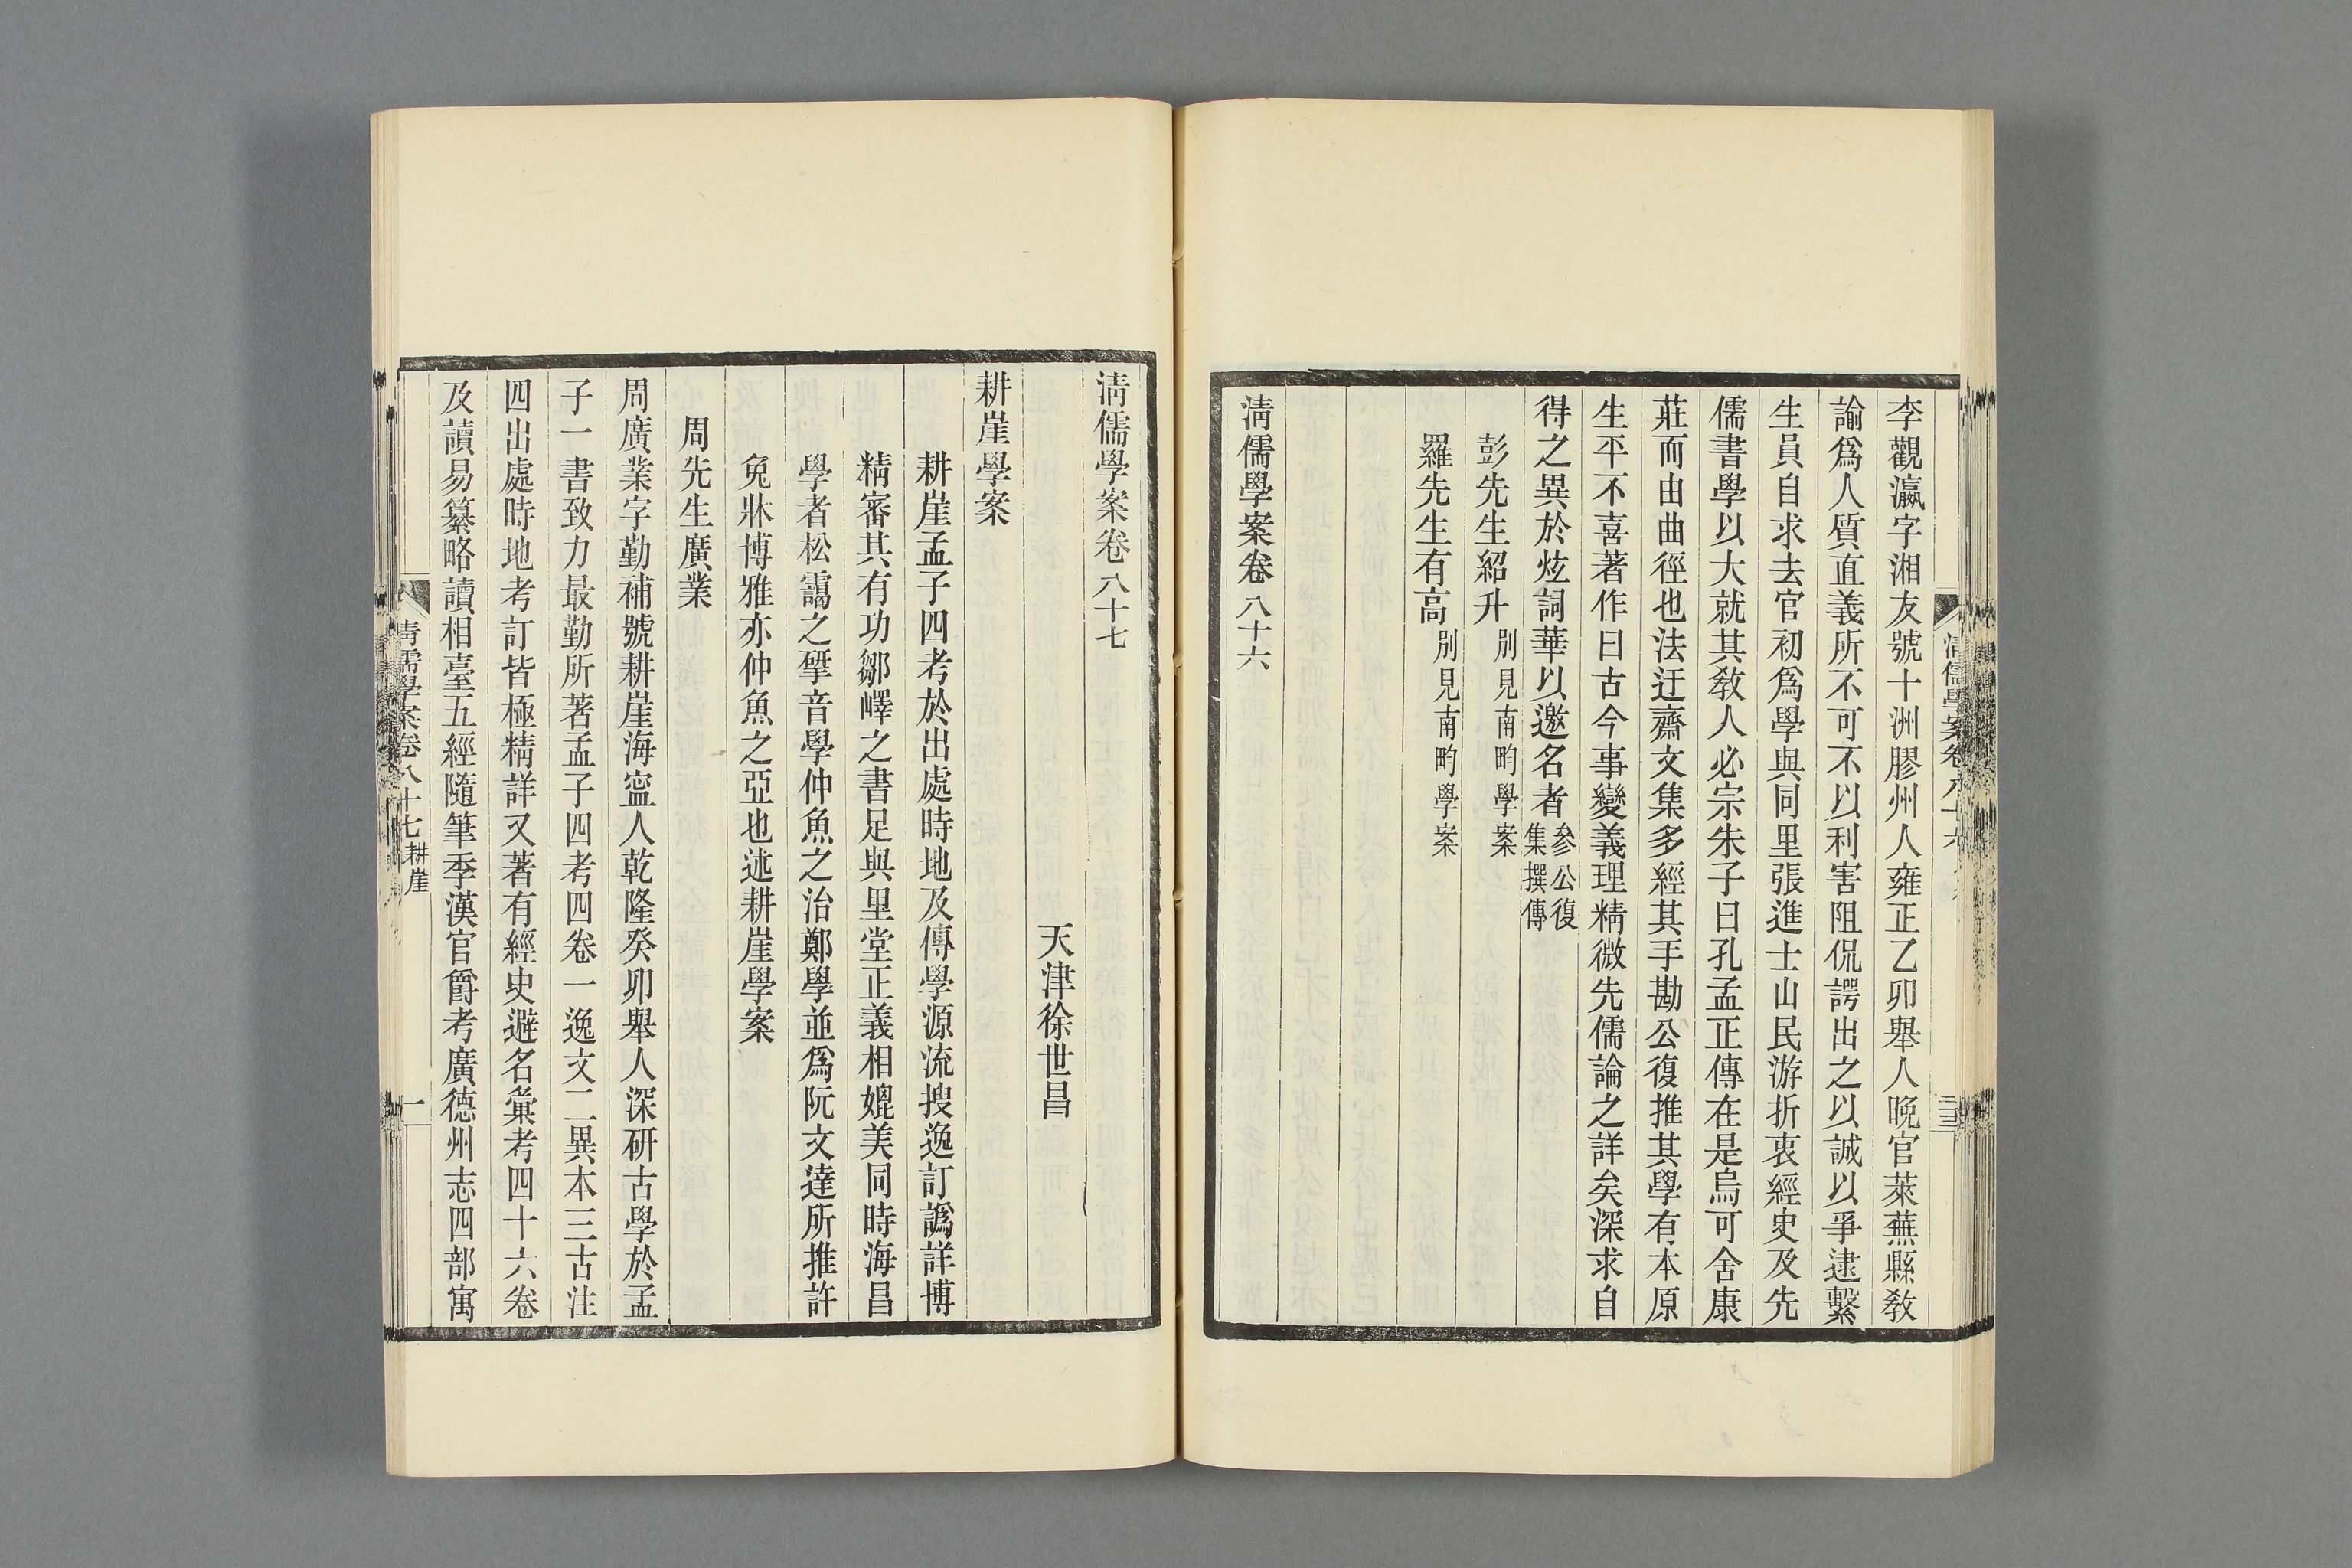 李觀瀛字湘友號十洲膠州人雍正乙卯舉人晚官萊蕪縣敎
諭爲人質直義所不可不以利害阻侃諤出之以誠以爭逮繫
生員自求去官初爲學與同里張進士山民游折衷經史及先
儒書學以大就其敎人必宗朱子曰孔孟正傳在是烏可舍康
莊而由曲徑也法迂齋文集多經其手勘公復推其學有本原
生平不喜著作曰古今事變義理精微先儒論之詳矣深求自
得之異於炫詞華以邀名者參公復集撰傳
彭先生紹升別見南畇學案
羅先生有高別見南畇學案
淸儒學案卷八十六
淸儒學案卷八十七
天津徐世昌
耕崖學案
耕崖孟子四考於出處時地及傳學源流搜逸訂譌詳博
精審其有功鄒嶧之書足與里堂正義相媲美同時海昌
學者松靄之揅音學仲魚之治鄭學並爲阮文達所推許
兔牀博雅亦仲魚之亞也述耕崖學案
周先生廣業
周廣業字勤補號耕崖海寍人乾隆癸卯舉人深研古學於孟
子一書致力最勤所著孟子四考四卷一逸文二異本三古注
四出處時地考訂皆極精詳又著有經史避名彙考四十六卷
及讀易纂略讀相臺五經隨筆季漢官爵考廣德州志四部寓
淸儒學案卷八十七 耕崖 一